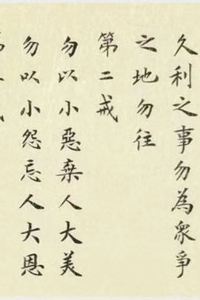 久利之事勿為衆爭
之地勿往
第二戒
勿以小惡棄人大美
勿以小怨忘人大恩